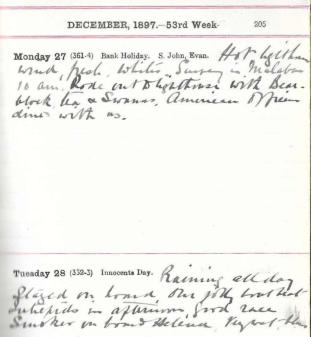 DECEMBER, 1897.—53rd Week 205
Monday 27 (361-4) Bank Holiday. S. John, Evan. Hot
wind, fresh. Whites. in
10 am. Rode out to lighthouse with Bear-
block tea & Swanns, American Officers
dine with us.
Tuesday 28 (362-3) Innocents Day. Raining all day
Stayed on board, Our jolly boat beat
in afternoon, good race
Smoker on board Helena, Very wet,